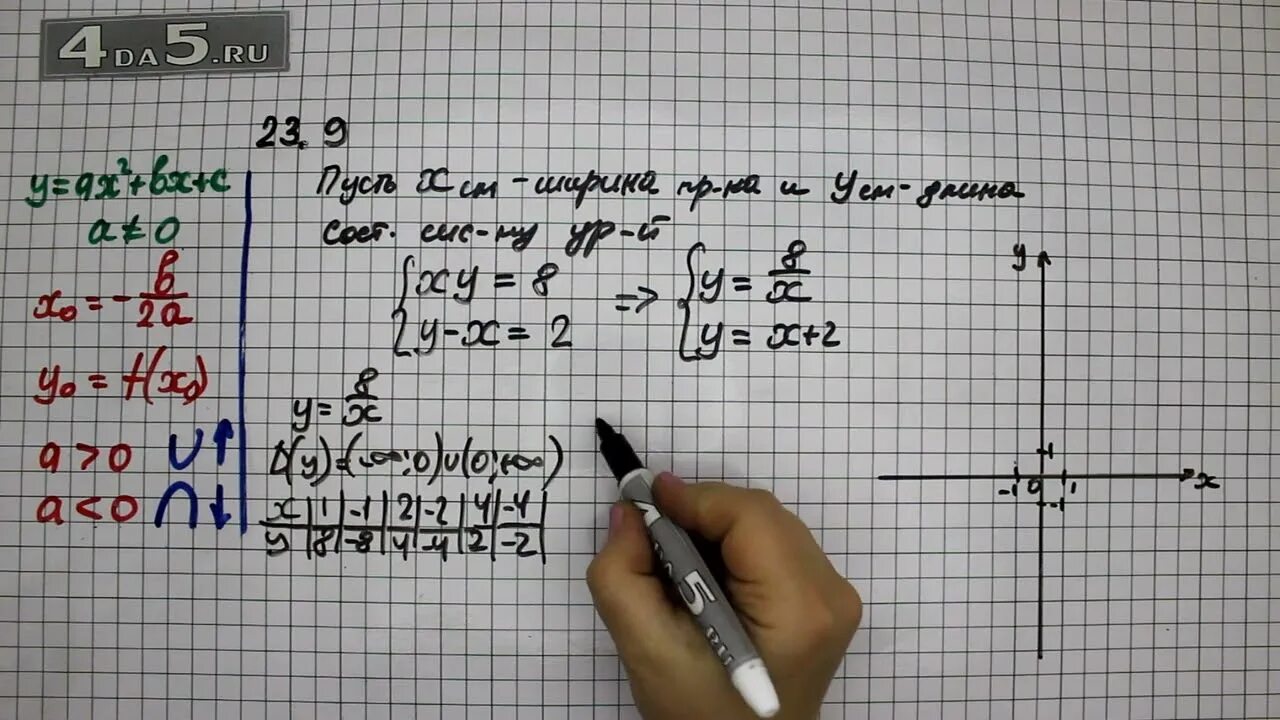 4DA5.RU
23.9
y=ax²+bx+c
a≠0
x₀=-b/2a
y₀=f(x₀)
a>0 ∪↑
a<0 ∩↓
Пусть x см - ширина пр-ка и y см - длина
Сост. сис-му ур-й
{xy=8 => {y=8/x
{y-x=2 {y=x+2
y=8/x
D(y)=(-∞;0)∪(0;+∞)
x | 1 | -1 | 2 | -2 | 4 | -4
y | 8 | -8 | 4 | -4 | 2 | -2
y
1
-1 0 1 x
-1
5